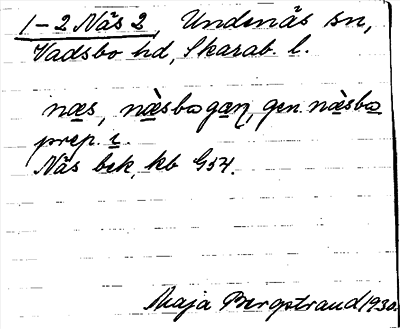 1-2 Näs 2, Undenäs sn,
Vadsbo hd, Skarab. l.
næs, næ̀sbogæɳ, gen. næ̀sba
prep. i.
Näs bek, kb G54.
Maja Bergstrand 1930.